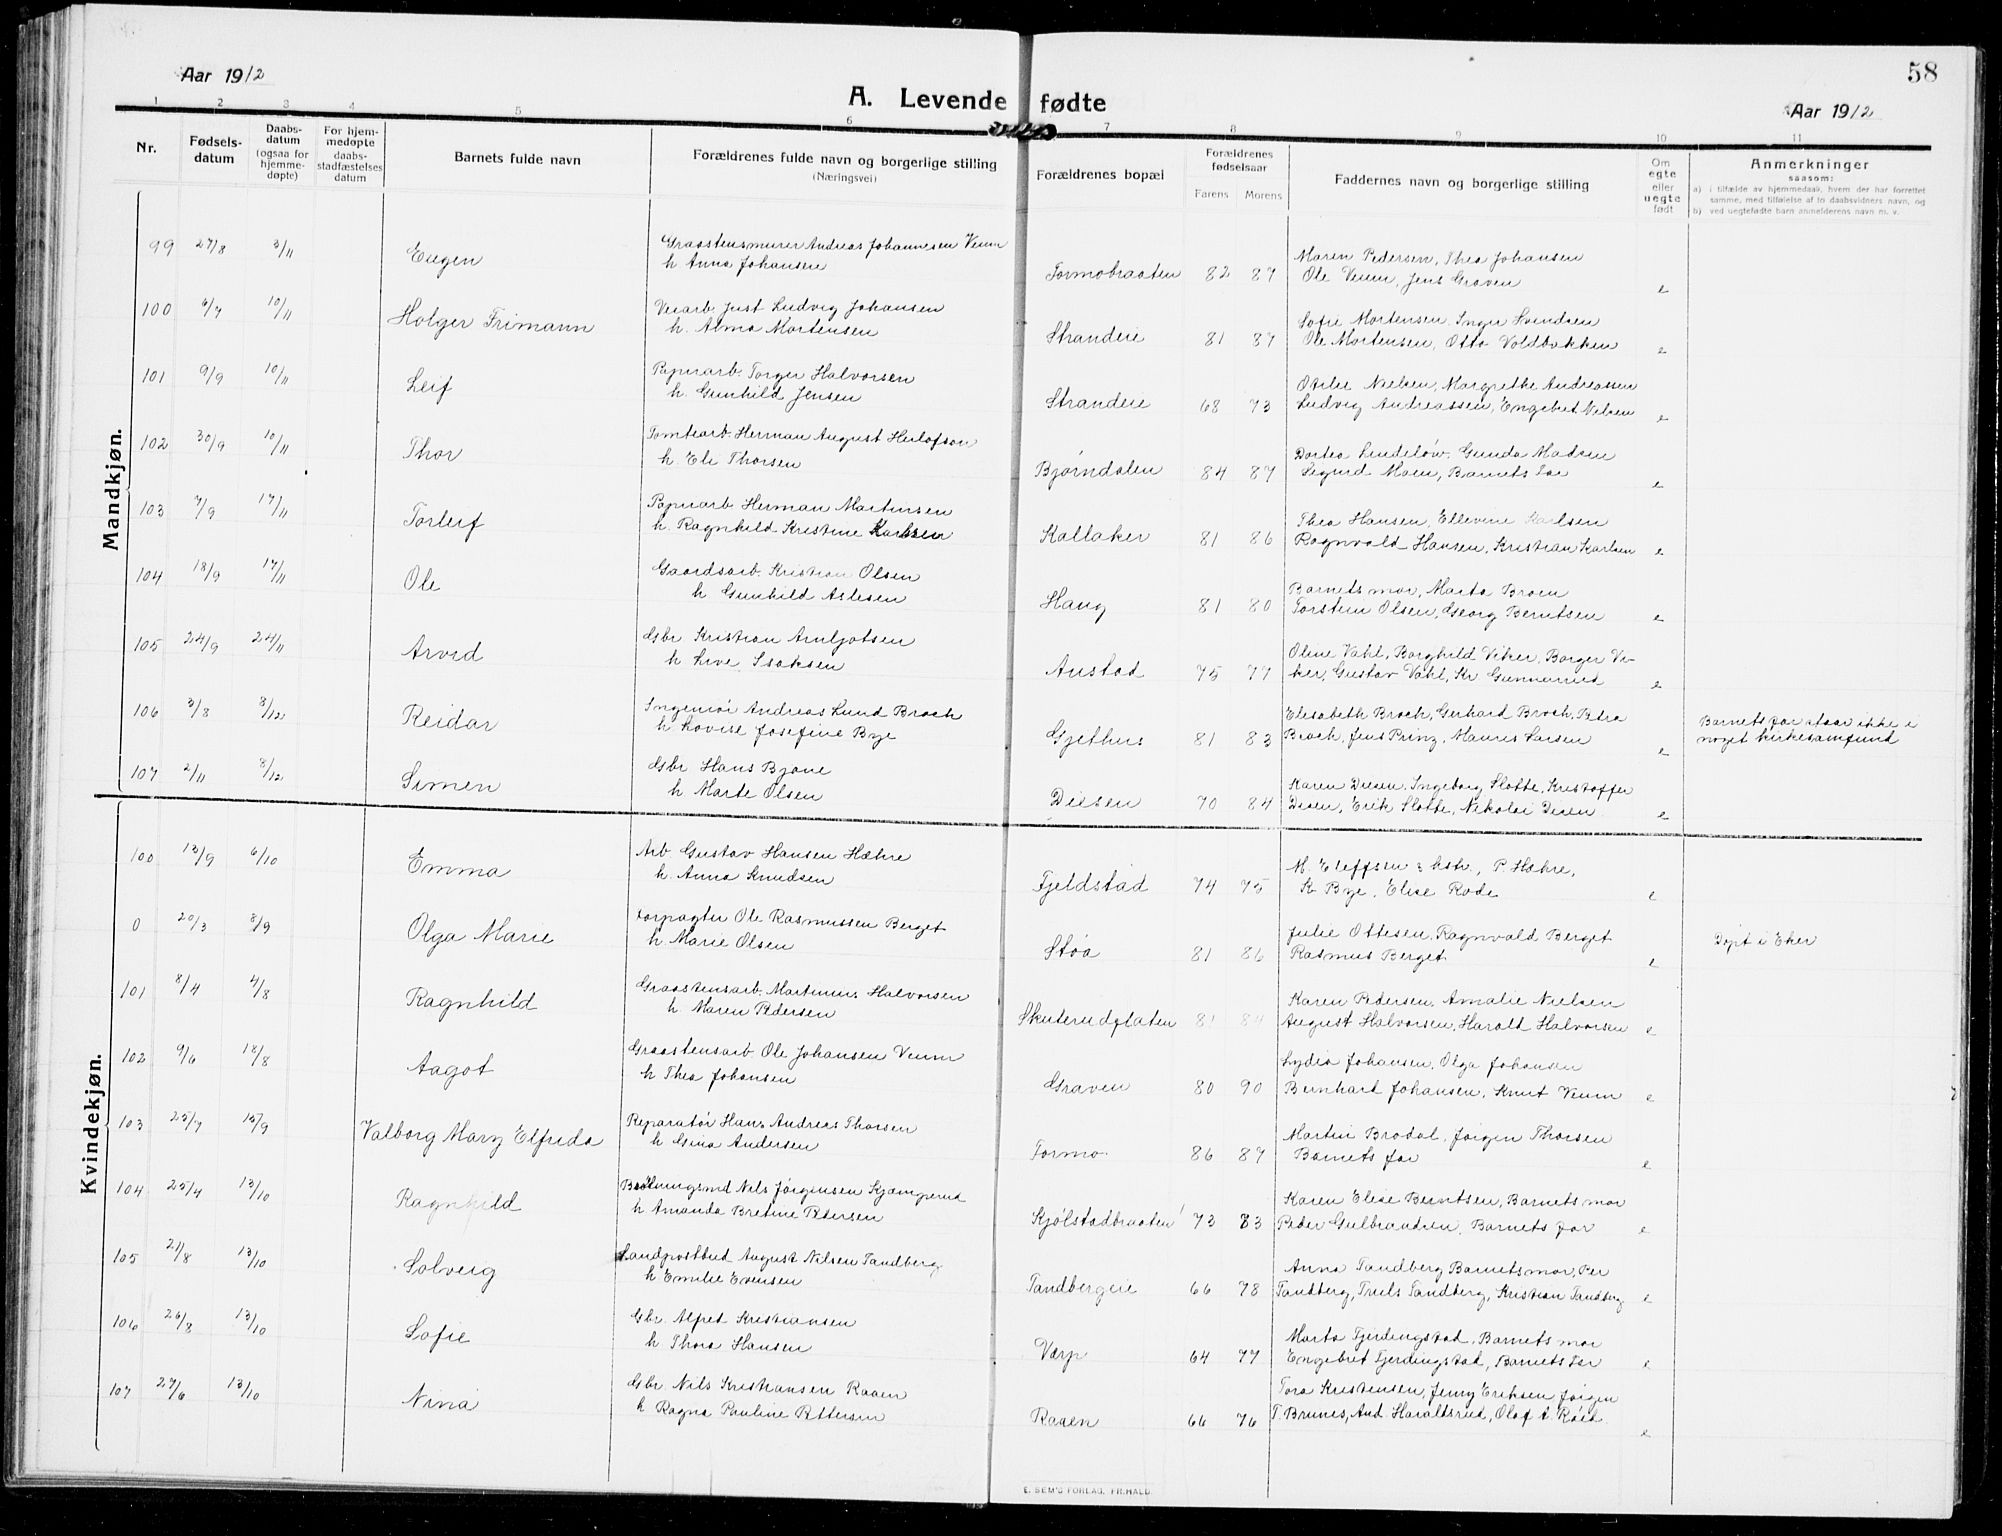 Aar 1912
58
A. Levende fødte
Aar 1912
1 2 3 4 5 6 7 8 9 10 11
Nr.
Fødsels-
datum
Daabs-
datum
(ogsaa for
hjemme-
døpte)
For hjem-
medøpte
daabs-
stadfæstelses
datum
Barnets fulde navn
Forældrenes fulde navn og borgerlige stilling
(Næringsvei)
Forældrenes bopæl
Forældrenes
fødselsaar
Farens Morens
Faddernes navn og borgerlige stilling
Om
egte
eller
uegte
født
Anmerkninger
saasom:
a) i tilfælde av hjemmedaab, hvem der har forrettet
samme, med tilføielse af to daabsvidners navn, og
b) ved uegtefødte barn anmelderens navn m. v.
Mandkjøn.
99 27/8 3/11 Eugen Graastensmurer Andreas Johannesen Veum Maren Pedersen, Thea Johansen
h. Anna Johansen Formobraaten 82 87 Ole Veum, Jens Graven e
100 6/7 10/11 Holger Frimann Veiarb. Just Ludvig Johansen Sofie Mortensen, Inger Svendsen
h. Alma Mortensen Strandeie 81 87 Ole Mortensen, Otto Voldbakken e
101 9/9 10/11 Leif Papirarb. Torger Halvorsen Otilie Nielsen, Margrethe Andreassen
h. Gunhild Jensen Strandeie 68 73 Ludvig Andreassen, Engebret Nielsen e
102 30/9 10/11 Thor Tomtearb. Herman August Herlofson Dortea Lindeløw, Gunda Madsen
h. Eli Thorsen Bjørndalen 84 87 Sigurd Moen, Barnets Far e
103 7/9 17/11 Torleif Papirarb Herman Martinsen Thea Hansen, Ellevine Karlsen
h. Ragnhild Kristine Karlsen Kallaker 81 86 Ragnvald Hansen, Kristian Karlsen e
104 18/9 17/11 Ole Gaardsarb. Kristian Olsen Barnets mor, Marta Broen
h Gunhild Aslesen Haug 81 80 Torstein Olsen, Georg Berntsen e
105 24/9 24/11 Arvid Gbr Kristian Arnljotsen Oline Vahl, Borghild Viker, Borger Vi-
h Live Isaksen Austad 75 77 ker, Gustav Vahl, Kr Gunnerud e
106 3/8 8/12 Reidar Ingeniør Andreas Lund Broch Elisabeth Broch, Gerhard Broch, Petra Barnets far staar ikke i
h Lovise Josefine Bye Gjethus 81 83 Broch, Jens Prinz, Maurits Larsen e noget kirkesamfund
107 2/11 8/12 Simen Gbr Hans Bjøne Karen Diesen, Ingeborg Slotte, Kristoffer
h Marte Olsen Diesen 70 84 Diesen, Erik Slotte, Nikolai Diesen e
Kvindekjøn.
100 13/9 6/10 Emma Arb. Gustav Hansen Hæhre M. Eleffsen & hstr., P. Hæhre,
h. Anna Knudsen Fjeldstad 74 75 K Bye, Elise Rode e
0 20/3 8/9 Olga Marie Forpagter Ole Rasmussen Berget Julie Ottesen, Ragnvald Berget Døpt i Eker
h. Marie Olsen Støa 81 86 Rasmus Berget e
101 8/4 4/8 Ragnhild Graastensarb. Martinius Halvorsen Karen Pedersen, Amalie Nielsen
h. Maren Pedersen Skuterudflaten 81 84 August Halvorsen, Harald Halvorsen e
102 9/6 18/8 Aagot Graastensarb. Ole Johansen Veum Lydia Johansen, Olga Johansen
h Thea Johansen Graven 80 90 Bernhard Johansen, Knut Veum e
103 25/7 15/9 Valborg Mary Elfrida Reparatør Hans Andreas Thorsen Martin Brodal, Jørgen Thorsen
h Gina Andersen Formo 86 87 Barnets far e
104 25/4 13/10 Ragnhild Nils Jørgensen Kjæmperud Karen Elise Berntsen, Barnets mor
h Amanda Bretine Pedersen Kjølstadbraaten 73 83 Peder Gulbrandsen, Barnets far e
105 21/8 13/10 Solveig Landpostbud August Nilsen Tandberg Anna Tandberg, Barnets mor, Per
h Emilie Evensen Tandbergeie 66 78 Tandberg, Truls Tandberg, Kristian Tandberg e
106 26/8 13/10 Sofie Gbr. Alfred Kristiansen Marta Fjerdingstad, Barnets mor
h Thora Hansen Værp 64 77 Engebret Fjerdingstad, Barnets Far e
107 27/6 13/10 Nina Gbr. Nils Kristiansen Raaen Tora Kristensen, Jenny Eriksen, Jørgen
h Ragna Pauline Pettersen Raaen 66 76 T. Brunes, And. Haraldsrud, Olaf A. Røed e
E. SEM'S FORLAG. FR.HALD.